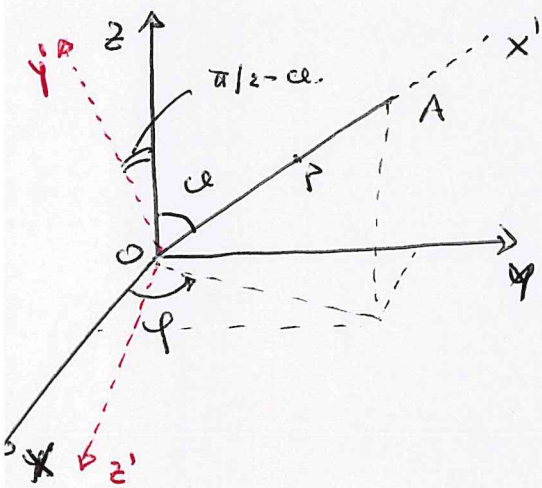 Z
y'
π/2-α.
x'
A
α
P
O
y
φ
X
z'